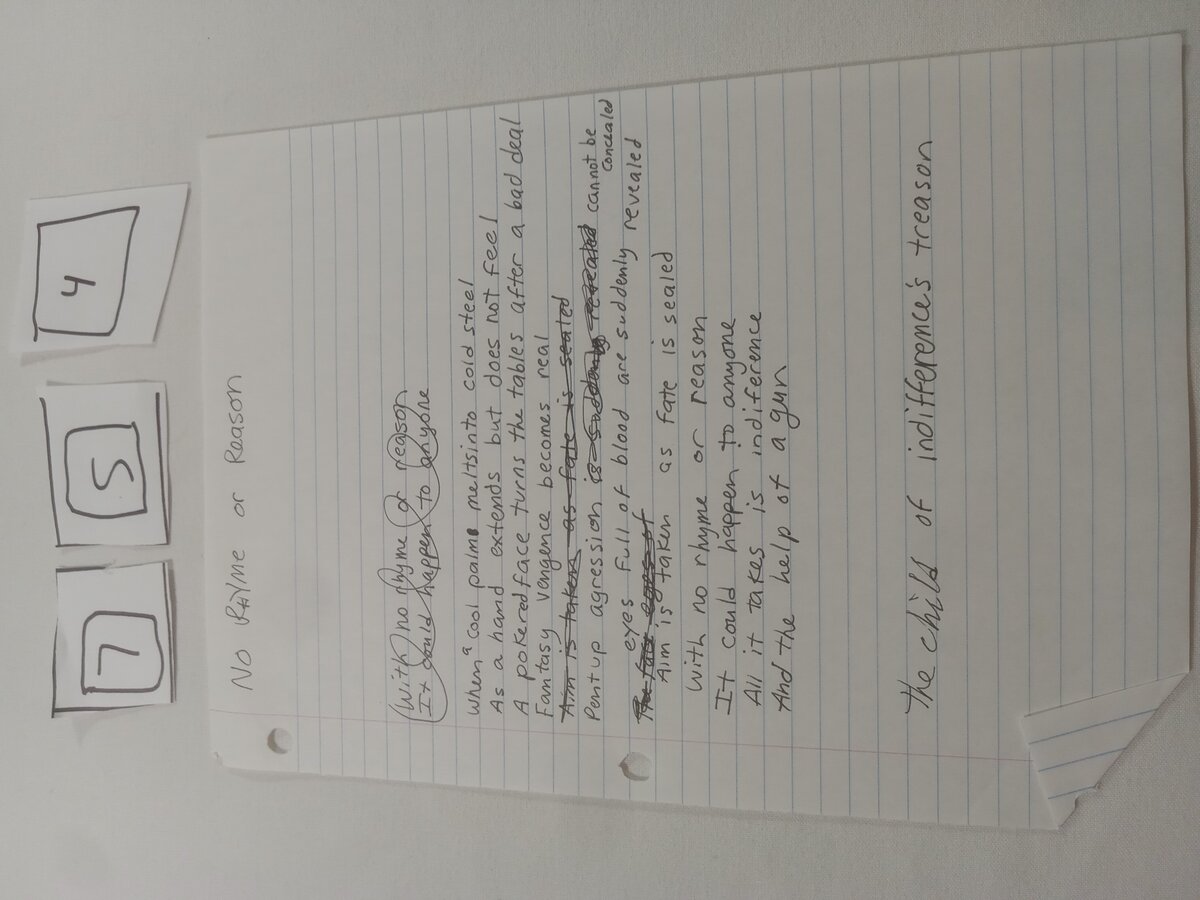 7 5 4
No Rhyme or Reason
With no rhyme or reason
It could happen to anyone
When a cool palm melts into cold steel
As a hand extends but does not feel
A pokered face turns the tables after a bad deal
Fantasy vengence becomes real
Aim is taken as fate is sealed
Pent up agression is suddenly revealed cannot be concealed
The face eyes of
eyes full of blood are suddenly revealed
Aim is taken as fate is sealed
With no rhyme or reason
It could happen to anyone
All it takes is indifference
And the help of a gun
The child of indifference's treason